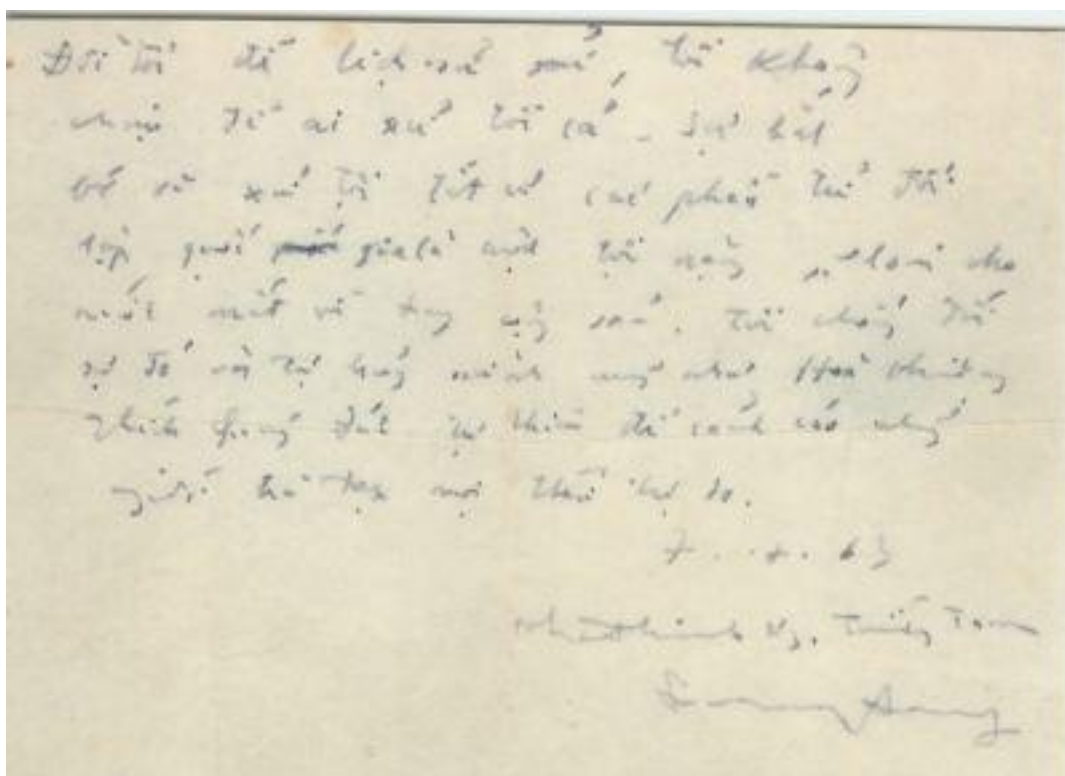 Đời tôi để lịch sử xử, tôi không
chịu để ai xử tôi cả. Sự bắt
bớ và xử tội tất cả các phần tử đối
lập quốc gia là một tội nặng, sẽ làm cho
nước mất về tay cộng sản. Tôi chống đối
sự đó và tự hủy mình cũng như Hoà thượng
Thích Quảng Đức tự thiêu để cảnh cáo những
người chà đạp mọi thứ tự do.
7-7-63
Nhất Linh Ng. Tường Tam